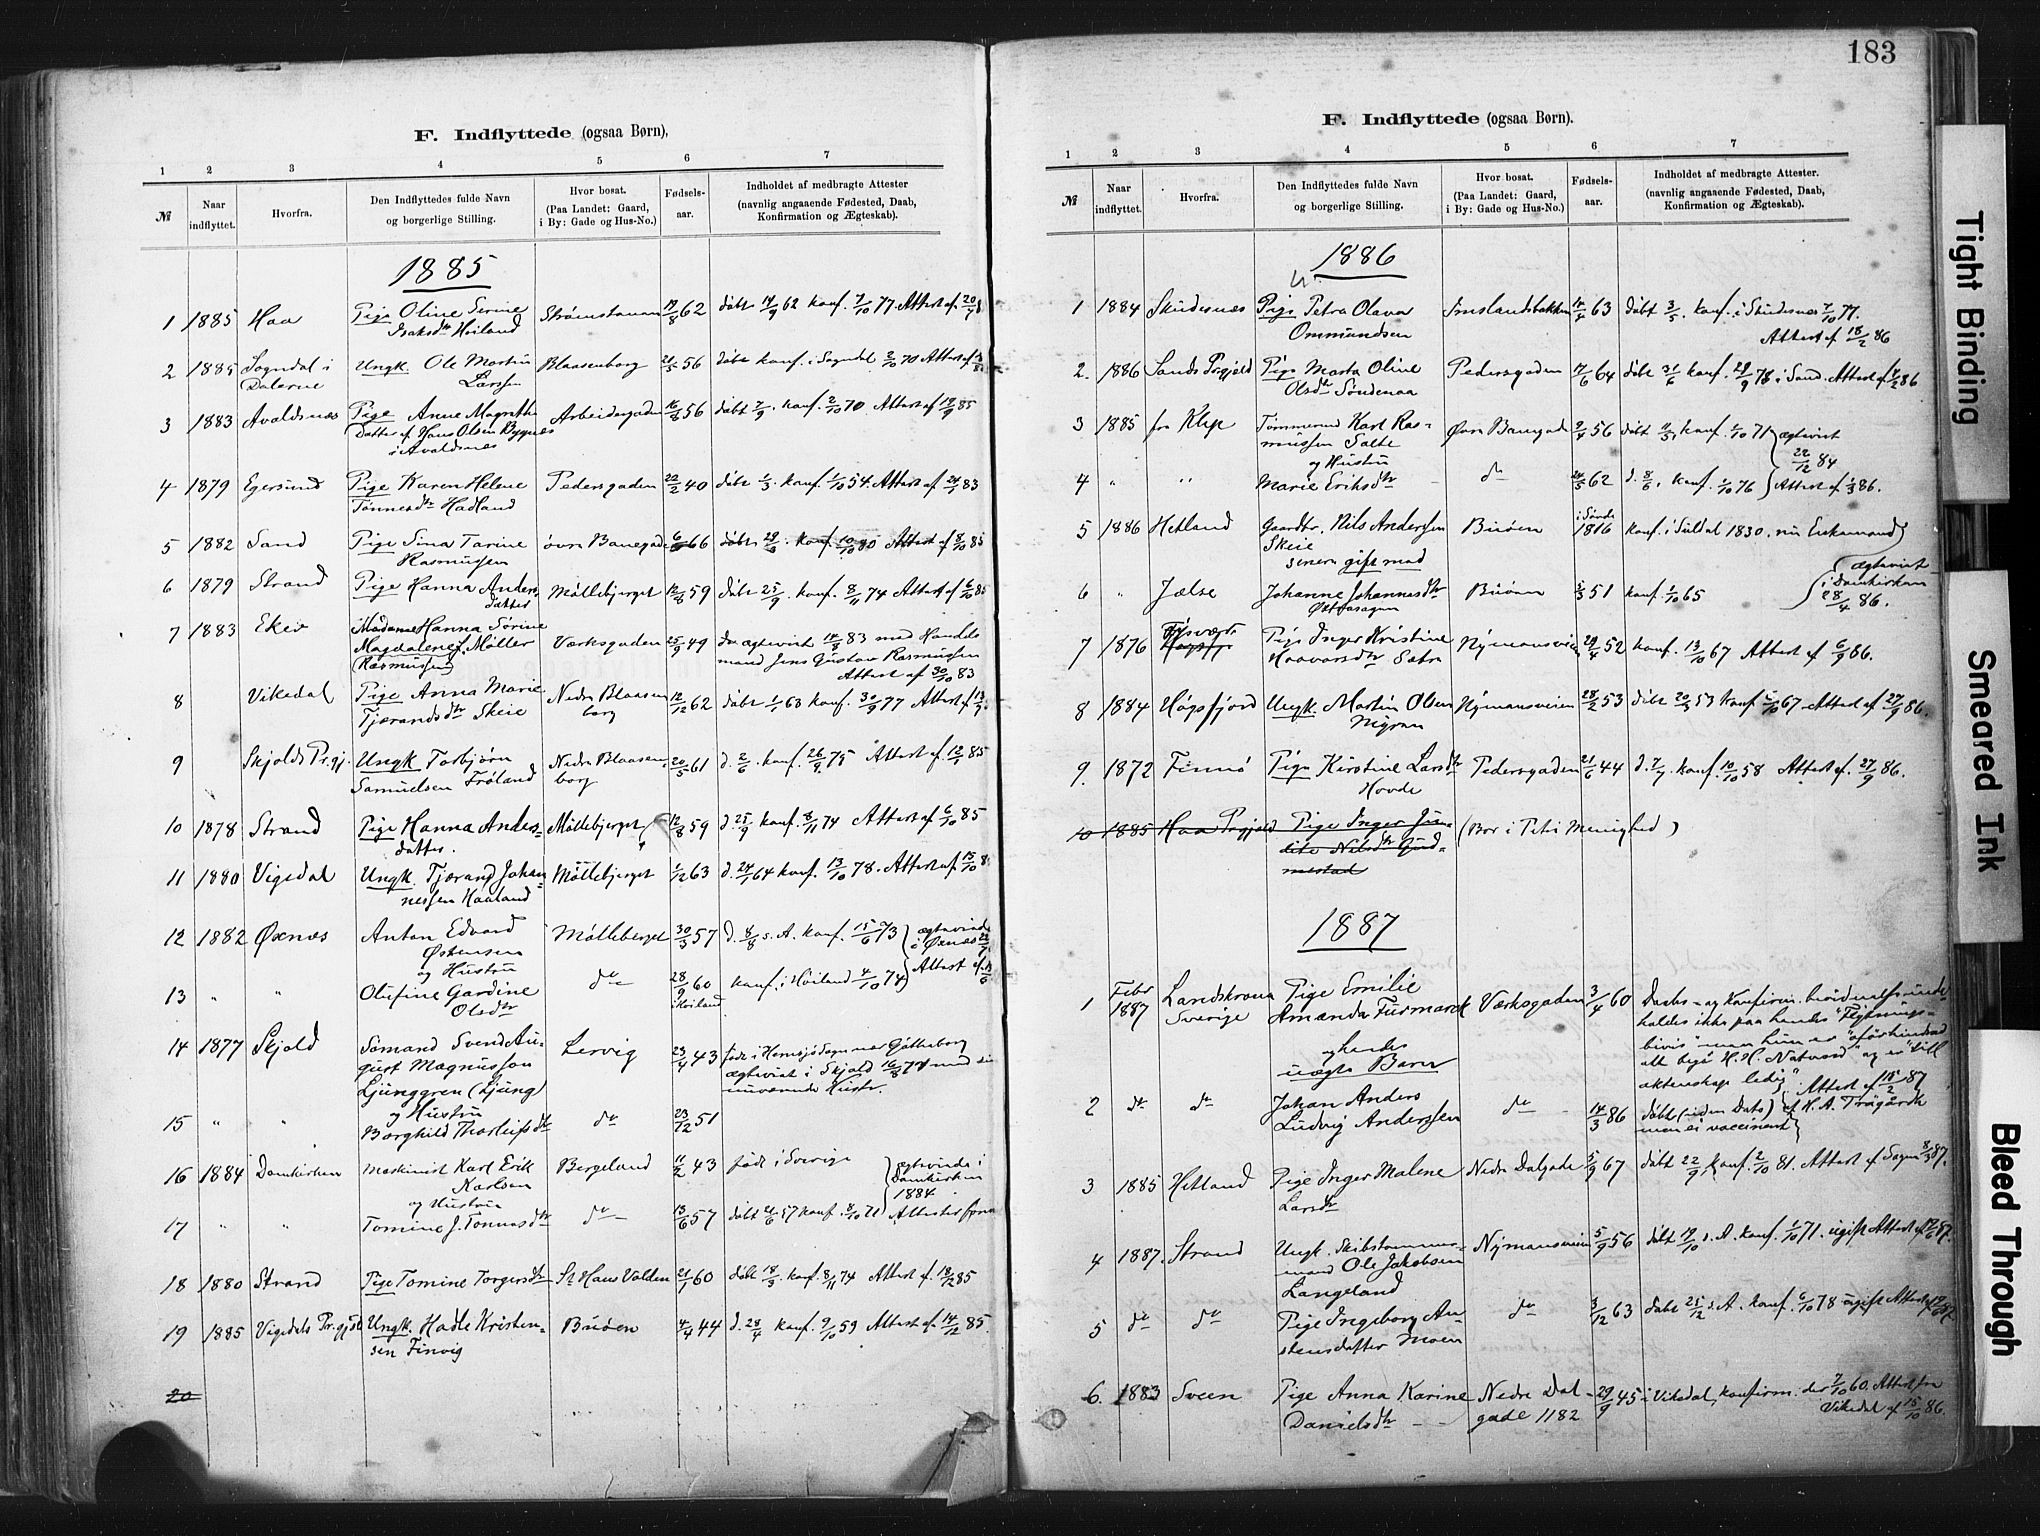 F. Indflyttede (ogsaa Børn).
1 2 3 4 5 6 7
№ Naar indflyttet. Hvorfra. Den Indflyttedes fulde Navn og borgerlige Stilling. Hvor bosat. (Paa Landet: Gaard, i By: Gade og Hus-No.) Fødsels-aar. Indholdet af medbragte Attester (navnlig angaaende Fødested, Daab, Konfirmation og Ægteskab).
1885
1 1885 Haa Pige Oline Serine 62 døbt 14/9 62 konf. 7/10 77 Attest af
Isaksdtr Høiland
2 1885 Sogndal i Ungk. Ole Martin Blaasenborg 56 døbt konf. i Sogndal 2/10 70 Attest af
Dalerne Larssen
3 1883 Avaldsnæs Pige Anne Magrethe Arbeidergaden 56 døbt 7/9. konf. 2/10 70 Attest af 19/9 85
Datter af Hans Olsen Bygnes
i Avaldsnæs
4 1879 Egersund Pige Karen Helene Pedersgaden 22/2 40 døbt 1/3. konf. 1/10 54. Attest af 83
Tønnesdtr Hadland
5 1882 Sand Pige Sina Tarine øvre Banegade 66 døbt konf. 10/10 80 Attest af 8/10 85
Rasmussen
6 1879 Strand Pige Hanna Anders- Møllebjerget 12/8 59 Døbt 25/9. konf. 8/11 74 Attest af 6/10 85
datter
7 1883 Eker Madame Hanna Sørine Værksgaden 25/9 49 Du ægteviet 14/8 83 med Handels
Magdalene f. Møller mand Jens Gustav Rasmussen
(Rasmussen) Attest af 30/10 83
8 Vikedal Pige Anna Marie Nedre Blaasen 12/12 62 døbt 1/1 63 konf. 30/9 77 Attest af
Tjærandsdtr Skeie borg
9 Skjolds Prgj. Ungk Torbjørn Nedre Blaasen 20/5 61 d. 2/6. konf. 26/9 75 Attest af 12/1 85
Samuelsen Frøland borg
10 1878 Strand Pige Hanna Anders- Møllebjerget 12/8 59 d. 25/9. konf. 8/11 74 Attest af 6/10 85
datter.
11 1880 Vigedal Ungk. Tjærand Johan- Møllebjerget 1/12 63 d. 24/1 64 konf. 13/10 78. Attest af 15/10 8
nessen Haaland
12 1882 Øxnæs Anton Edvard Mølleberget 30/3 57 d. 8/8 s. A. konf. 15/6 73 ægteviede
Østensen i Øxnæs
og Hustru
13 " " Olufine Gardine do 28/9 60 konf. i Høiland 4/10 74 Attest af
Olsdtr i Høiland
14 1877 Skjold Sømand Svend Au- Lervig 23/4 43 født i Göteborg
gust Magnusson ægteviet i Skjold 77 med sin
Ljunggren (Ljung) nuværende Hustr.
og Hustru
15 " " Borghild Thorleifsdtr do 23/12 51
16 1884 Domkirken Maskinist Karl Erik Bergeland 11/2 43 født i Sverige ægteviede i
Karlsen Domkirken
og Hustru 1884.
17 " " Tomine J. Tønnesdtr do 13/6 57 døbt 21/6 57 konf. 8/10 71 Attester
18 1880 Strand Pige Tomine Torgersdtr St Hans Volden 21/1 60 døbt 18/3. konf. 8/11 74 Attest af. 18/12 85
19 1885 Vigedals Prgjeld Ungk. Hadle Kristen- Buøen 4/4 44 d. 28/4 konf. 9/10 59 Attest af. 14/12 85.
sen Finvig
20
183
F. Indflyttede (ogsaa Børn).
1 2 3 4 5 6 7
№ Naar indflyttet. Hvorfra. Den Indflyttedes fulde Navn og borgerlige Stilling. Hvor bosat. (Paa Landet: Gaard, i By: Gade og Hus-No.) Fødsels-aar. Indholdet af medbragte Attester. (navnlig angaaende Fødested, Daab, Konfirmation og Ægteskab).
1886
1 1884 Skudesnæs Pige Petra Olava Imslandsbakken 63 døbt 3/5. konf. i Skudesnæs 7/10 77.
Ommundsen Attest af 18/2 86
2. 1886 Sands Prgjeld Pige Marta Oline Pedersgaden 17/6 64 døbt konf. 29/9 78 i Sand. Attest af 86
Olsdtr Søndenaa
3 1885 fra Klep Tømmermd Karl Ras- Øvre Banegade 9/4 56 døbt konf. 1/10 71 ægteviet
mussen Salte 22/12 84
og Hustru
4 " " Marie Eriksdtr do 24/5 62 d. 8/6. konf. 1/10 76 Attest af 1/3 86.
5 1886 Hetland Gaardbr. Nils Anderssen Buøen 1816 konf. i Suldal 1830. nu Enkemand
Skeie
senere gift med ægteviet
6 " Jælse Johanne Johannesdtr Buøen 51 konf. 1/10 65 i Domkirken
28/4 86.
7 1876 Tysvær Pige Inger Kristine Nymansveien 29/4 52 konf. 13/10 67 Attest af 6/9 86.
Haavarsdtr Sætre
8 1884 Høgsfjord Ungk. Martin Olsen Nymansveien 28/2 53 døbt 20/3 53 konf. 67. Attest af 27/9 86.
Myran
9. 1872 Finnø Pige Kirstine Larsdtr Pedersgaden 21/6 44 d. 7/7. konf. 10/10 58 Attest af. 27/9 86.
Hovde
10 1885 Haa Prgjeld Pige Inger Ju- (Bor i Petri Menighed)
lite Nilsdtr Gud-
mestad
1887
1 Febr Landskrona Pige Emilie Værksgaden 3/4 60 Daabs- og Konfirm.
1887 Sverige Amanda Furmark holdes ikke paa hendes "Flytnings-
og hendes bevis" men hun er "oförhindrad
uægte Barn att begå H. H. Nattvard" og er "till
äktenskap ledig" Attest af 15/2 87
2 do do Johan Anders do 14/3 86 døbt (uden Dato) af H. A. Trägårdh
Ludvig Anderssen men ei vaccineret
3 1885 Hetland Pige Inger Malene Nedre Dalgade 5/9 67 døbt 22/9, konf. 2/10 81. Attest af Sogne 8/3 87.
Larsdtr
4 1887. Strand Ungk. Skibstømmer- Nymansveien 5/9 56 døbt 19/10 s. A. konf. 1/10 71. ugift Attest af 87.
mand Ole Jakobsen
Langeland
5 do do Pige Ingeborg Au- do 3/12 63 døbt 25/12 s. A. konf. 6/10 78 ugift Attest af 87.
stensdatter Moen
6. 1883 Sveen Pige Anna Karine Nedre Dal- 29/9 45 i Vikedal, konfirm. der 7/10 60. Attest fra
Danielsdtr gade 1182 Vikedal af 15/10 86.
Tight Binding
Smeared Ink
Bleed Through